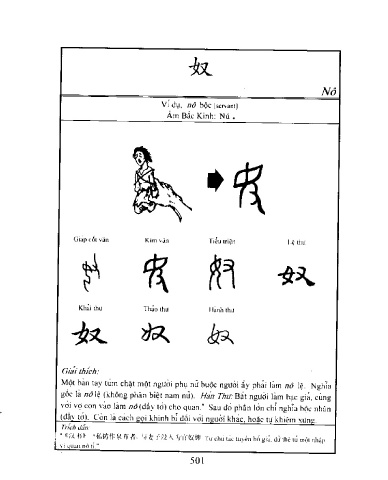 奴
Nô
Ví dụ, nô bộc (servant)
Âm Bắc Kinh: Nú.
Giáp cốt văn Kim văn Tiểu triện Lệ thư
奴
Khải thư Thảo thư Hành thư
奴 奴 奴
Giải thích:
Một bàn tay túm chặt một người phụ nữ buộc người ấy phải làm nô lệ. Nghĩa
gốc là nô lệ (không phân biệt nam nữ). Hán Thư: Bắt người làm bạc giả, cùng
với vợ con vào làm nô (đầy tớ) cho quan." Sau đó phần lớn chỉ nghĩa bộc nhân
(đầy tớ). Còn là cách gọi khinh bỉ đối với người khác, hoặc tự khiêm xưng.
Trích dẫn
501